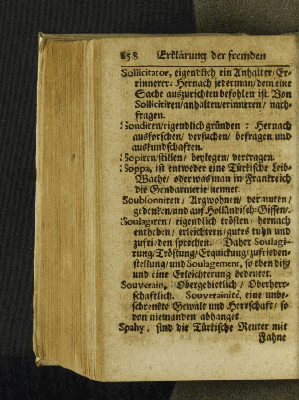 858 Erklärung der fremden
Sollicitator, eigendlich ein Anhalter/Er-
rinnerer: Hernach jederman/dem eine
Sache auszurichten befohlen ist. Von
Sollicitiren/anhalten/erinneren/ nach-
fragen.
Sondiren/eigendlich gründen: Hernach
ausforschen/ versuchen/ befragen und
auskundschaften.
Sopiren/stillen/ beylegen/ vertragen.
Soppa, ist entweder eine Türkische Leib-
Wache/ oder was man in Franckreich
die Gendarmerie nennet.
Soubsonniren/ Argwohnen/ vermuten/
gedenken/und auf Holländisch-Gissen/.
Soulagiren/ eigendlich trösten/ hernach
entheben/ erleichtern/gutes tuhn und
zufrieden sprechen. Daher Soulagi-
rung/Tröstung/Erquickung/zufrieden-
stellung/und Soulagement, so eben diß/
und eine Erleichterung bedeutet.
Souverain, Obergebietlich/ Oberherr-
schaftlich. Souverainité, eine unbe-
schrenkte Gewalt und Herrschaft/ so
von niemanden abhanget.
Spahy, sind die Türkische Reuter mit
Fahne